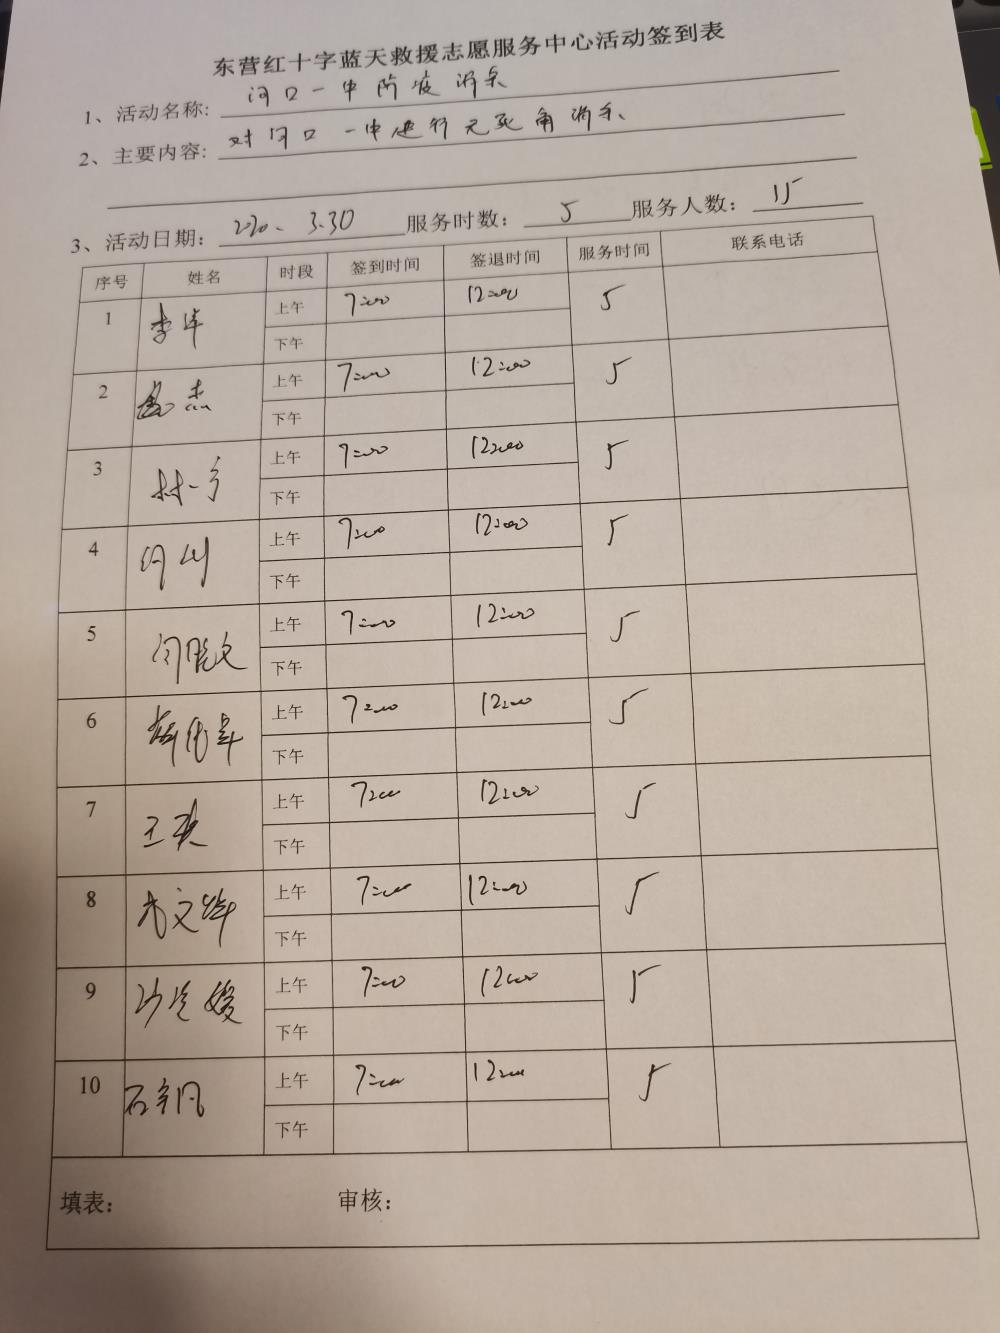 东营红十字蓝天救援志愿服务中心活动签到表
1、活动名称: 河口一中防疫消杀
2、主要内容: 对河口一中进行无死角消杀、
3、活动日期: 2020.3.30 服务时数: 5 服务人数: 15
序号 姓名 时段 签到时间 签退时间 服务时间 联系电话
1 李华 上午 7:00 12:00 5
下午
2 上午 7:00 12:00 5
下午
3 上午 7:00 12:00 5
下午
4 上午 7:00 12:00 5
下午
5 闫晓文 上午 7:00 12:00 5
下午
6 上午 7:00 12:00 5
下午
7 上午 7:00 12:00 5
下午
8 上午 7:00 12:00 5
下午
9 上午 7:00 12:00 5
下午
10 上午 7:00 12:00 5
下午
填表: 审核: